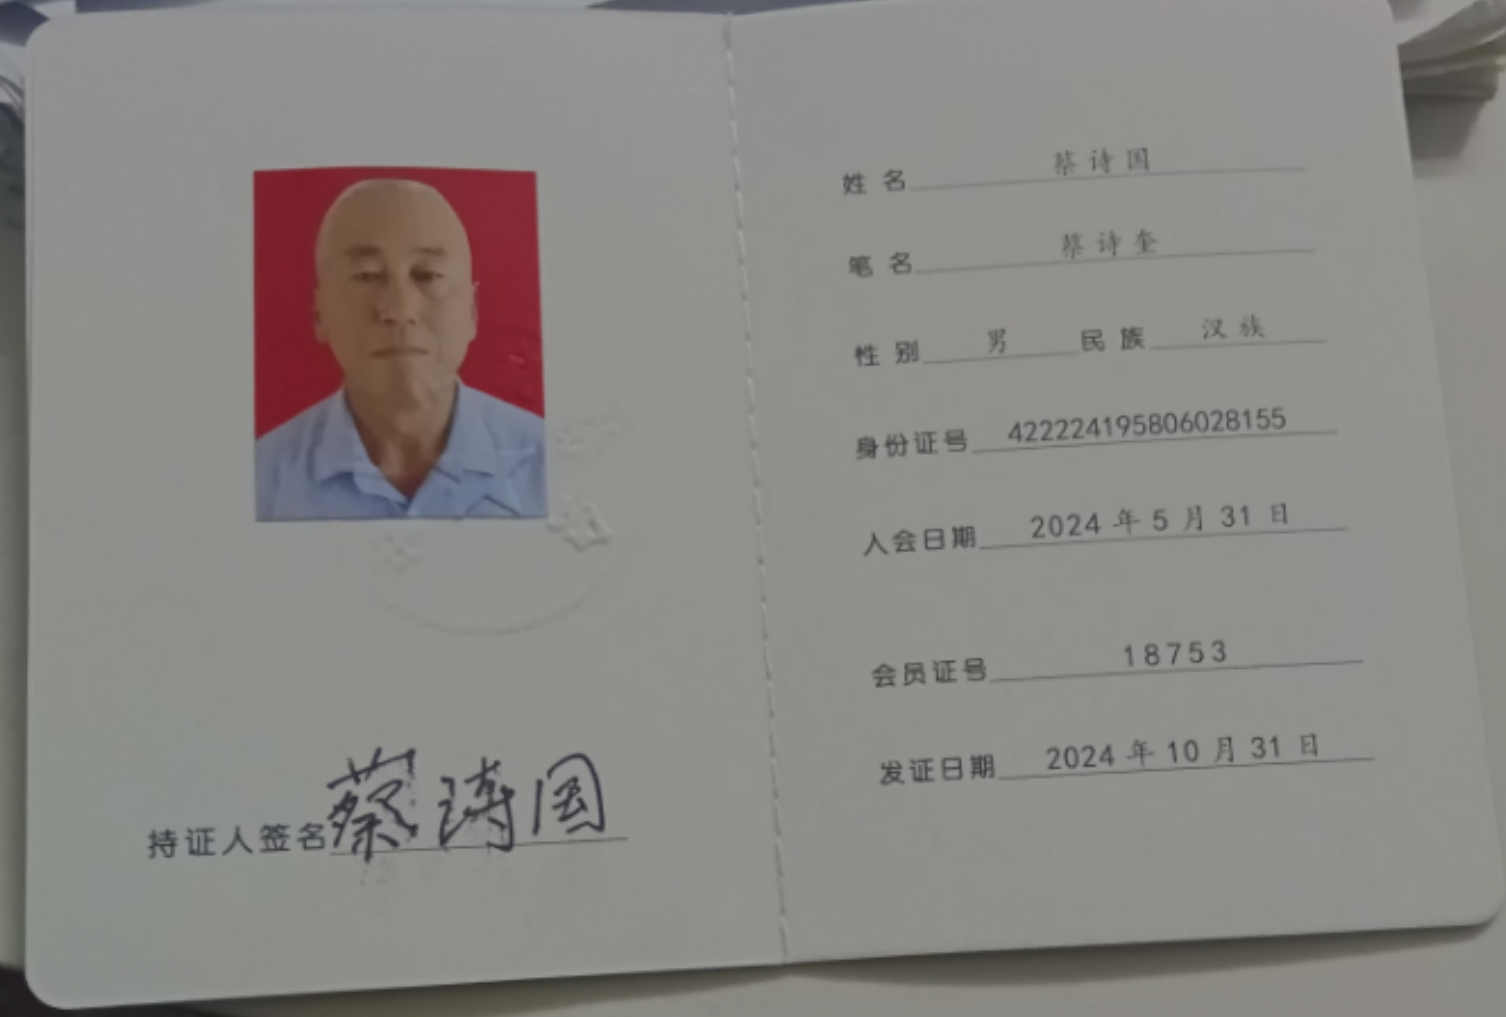 持证人签名蔡诗国
姓名 蔡诗国
笔名 蔡诗奎
性别 男 民族 汉族
身份证号 422224195806028155
入会日期 2024年5月31日
会员证号 18753
发证日期 2024年10月31日